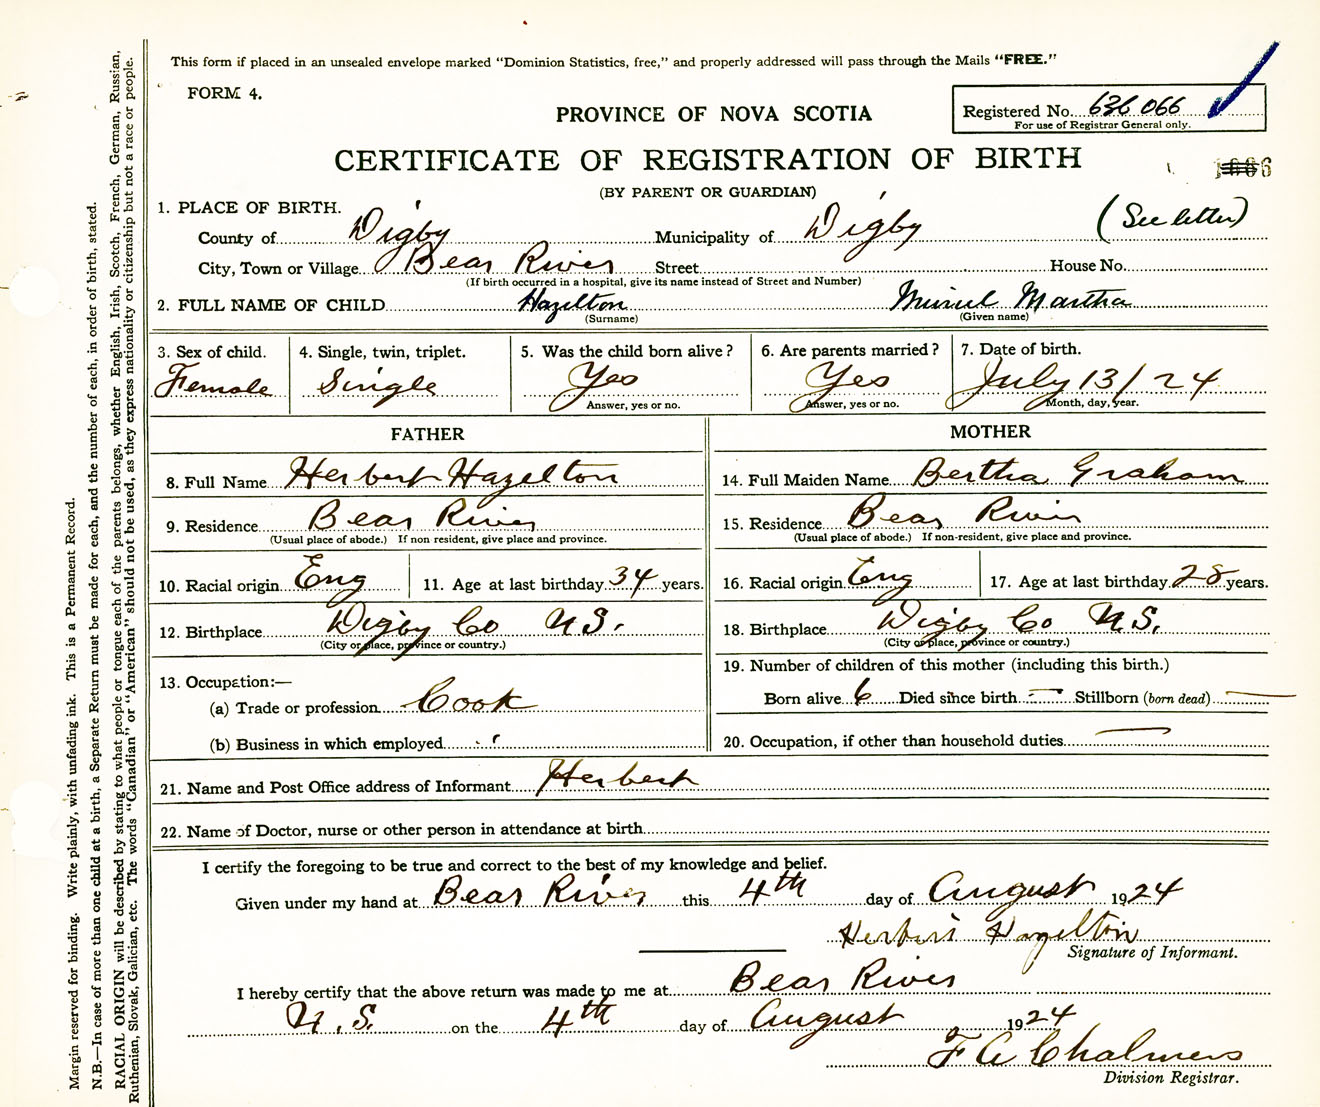 This form if placed in an unsealed envelope marked "Dominion Statistics, free," and properly addressed will pass through the Mails "FREE."
FORM 4.
Registered No. 636 066
For use of Registrar General only.
PROVINCE OF NOVA SCOTIA
CERTIFICATE OF REGISTRATION OF BIRTH
(BY PARENT OR GUARDIAN)
1. PLACE OF BIRTH.
(See letter)
County of Digby Municipality of Digby
City, Town or Village Bear River Street House No.
(If birth occurred in a hospital, give its name instead of Street and Number)
2. FULL NAME OF CHILD Hazelton Muriel Martha
(Surname) (Given name)
3. Sex of child. 4. Single, twin, triplet. 5. Was the child born alive? 6. Are parents married? 7. Date of birth.
Female Single Yes Yes July 13/24
Answer, yes or no. Answer, yes or no. Month, day, year.
FATHER MOTHER
8. Full Name Herbert Hazelton 14. Full Maiden Name Bertha Graham
9. Residence Bear River 15. Residence Bear River
(Usual place of abode.) If non resident, give place and province. (Usual place of abode.) If non-resident, give place and province.
10. Racial origin Eng 11. Age at last birthday 34 years. 16. Racial origin Eng 17. Age at last birthday 28 years.
12. Birthplace Digby Co N.S. 18. Birthplace Digby Co N.S.
(City or place, province or country.) (City or place, province or country.)
13. Occupation:— 19. Number of children of this mother (including this birth.)
(a) Trade or profession Cook Born alive 6 Died since birth — Stillborn (born dead) —
(b) Business in which employed 20. Occupation, if other than household duties —
21. Name and Post Office address of Informant Herbert
22. Name of Doctor, nurse or other person in attendance at birth
I certify the foregoing to be true and correct to the best of my knowledge and belief.
Given under my hand at Bear River this 4th day of August 1924
Herbert Hazelton
Signature of Informant.
I hereby certify that the above return was made to me at Bear River
N.S. on the 4th day of August 1924
F A Chalmers
Division Registrar.
Margin reserved for binding. Write plainly, with unfading ink. This is a Permanent Record.
N.B.—In case of more than one child at a birth, a Separate Return must be made for each, and the number of each, in order of birth, stated.
RACIAL ORIGIN will be described by stating to what people or tongue each of the parents belongs, whether English, Irish, Scotch, French, German, Russian,
Ruthenian, Slovak, Galician, etc. The words "Canadian" or "American" should not be used, as they express nationality or citizenship but not a race or people.